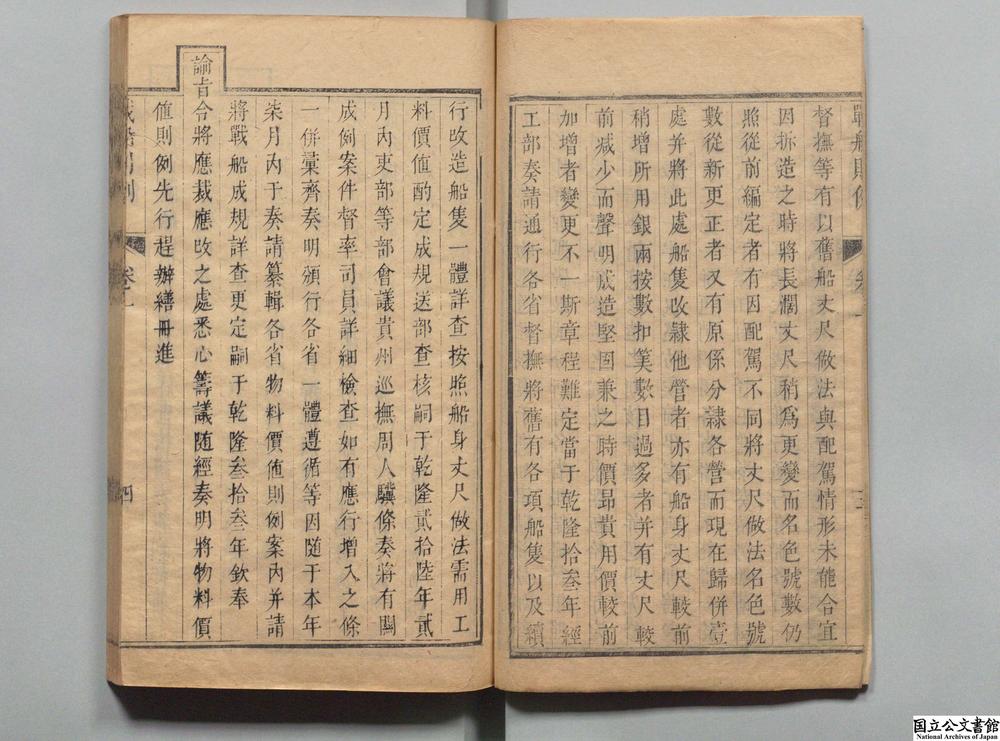 督撫等有以舊船丈尺做法與配駕情形未能合宜
因拆造之時將長濶丈尺稍爲更變而名色號數仍
照從前編定者有因配駕不同將丈尺做法名色號
數從新更正者又有原係分隷各營而現在歸併壹
處并將此處船隻改隷他營者亦有船身丈尺較前
稍增所用銀兩按數扣筭數目過多者并有丈尺較
前减少而聲明成造堅固兼之時價昻貴用價較前
加增者變更不一斯章程難定當于乾隆拾叁年經
工部奏請通行各省督撫將舊有各項船隻以及續
行改造船隻一體詳查按照船身丈尺做法需用工
料價值酌定成規送部查核嗣于乾隆貳拾陸年貳
月內吏部等部會議貴州巡撫周人驥條奏將有關
成例案件督率司員詳細檢查如有應行增入之條
一併彙齊奏明頒行各省一體遵循等因随于本年
柒月內于奏請纂輯各省物料價值則例案內并請
將戰船成規詳查更定嗣于乾隆叁拾叁年欽奉
諭旨令將應裁應改之處悉心籌議随經奏明將物料價
值則例先行趕辦繕冊進
四
国立公文書館
National Archives of Japan